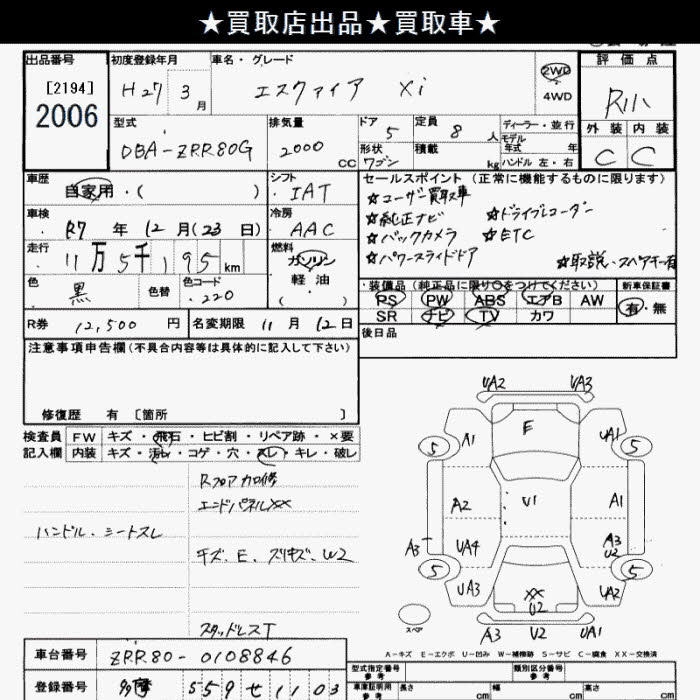 ★買取店出品★買取車★
出品番号
[2194]
2006
初度登録年月
H27 3月
車名・グレード
エスクァイア Xi
2WD
4WD
評価点
R11
外装 内装
C C
型式
DBA-ZRR80G
排気量
2000 CC
ドア
5
定員
8 人
形状
ワゴン
積載
kg
ディーラー・並行
モデル年式 年
ハンドル 左・右
車歴
自家用・( )
シフト
IAT
車検
R7 年 12 月 (23 日)
冷房
AAC
走行
11万5千195km
燃料
ガソリン
軽油
( )
色
黒
色替
色コード
220
セールスポイント (正常に機能するものに限ります)
☆ユーザー買取車
☆純正ナビ ☆ドライブレコーダー
☆バックカメラ ☆ETC
☆パワースライドドア ☆取説・スペアキー有
装備品(純正品に限り○をつけてください)
PS PW ABS エアB AW
SR ナビ TV カワ
新車保証書
有・無
R券 12,500 円
名変期限 11 月 12 日
後日品
注意事項申告欄(不具合内容等は具体的に記入して下さい)
修復歴 有 〔箇所 〕
検査員記入欄
FW キズ・飛石・ヒビ割・リペア跡・×要
内装 キズ・汚レ・コゲ・穴・スレ・キレ・破レ
Rフロア加修
エンドパネルXX
ハンドル・シートスレ
キズ、E、ズリキズ、W2
スタッドレスT
UA2 UA3
5 A1 E UA1 5
A2 U1 A1
A3 UA4 A3 U2
5 UA3 XX U2 UA2 5
スペア
A3 U2 UA1
A-キズ E-エクボ U-凹み W-補修跡 S-サビ C-腐食 XX-交換済
車台番号 ZRR80-0108846
登録番号 559 せ 1103
型式指定番号 参考
類別区分番号 参考
車庫証明用 参考
長さ cm
幅 cm
高さ cm